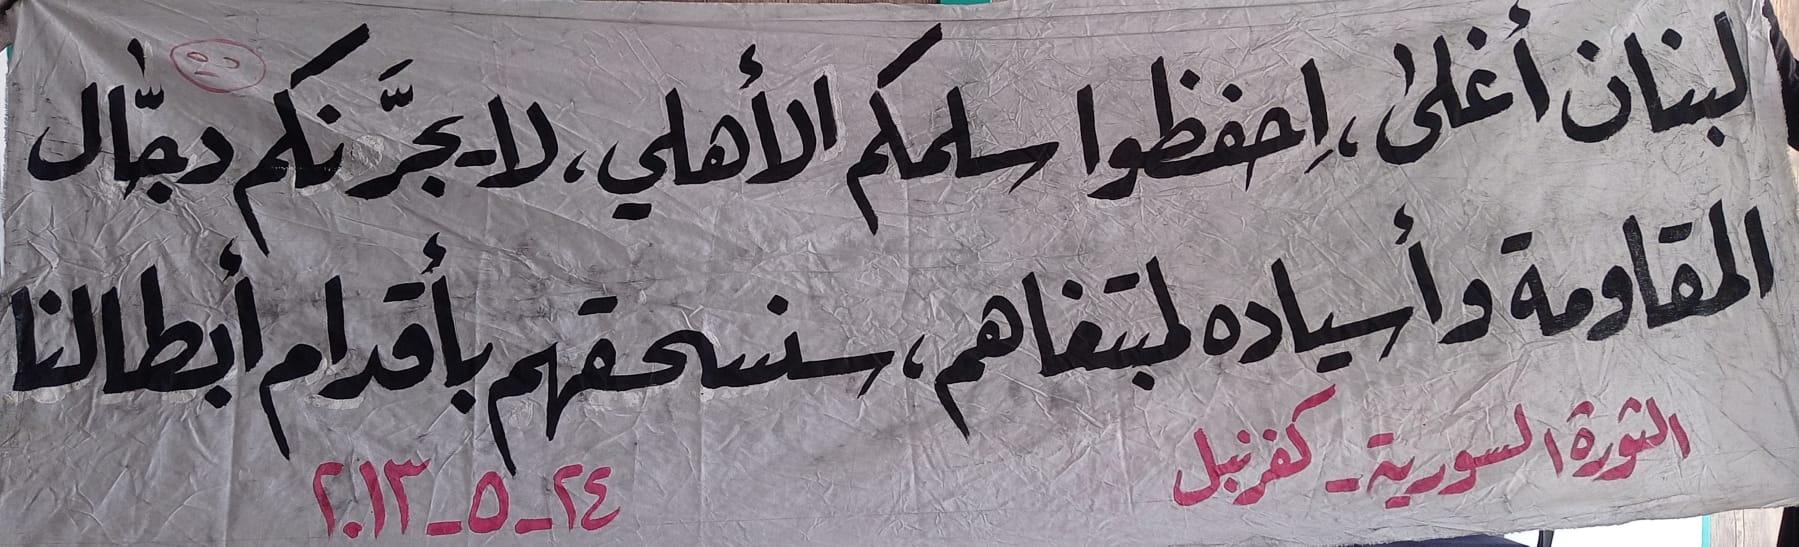 لبنان أغلىٰ، اِحفظوا سلمكم الأهلي، لا يجرَّنكم دجّال
المقاومة وأسياده لمبتغاهم، سنسحقهم بأقدام أبطالنا
الثورة السورية - كفرنبل
٢٤ - ٥ - ٢٠١٣